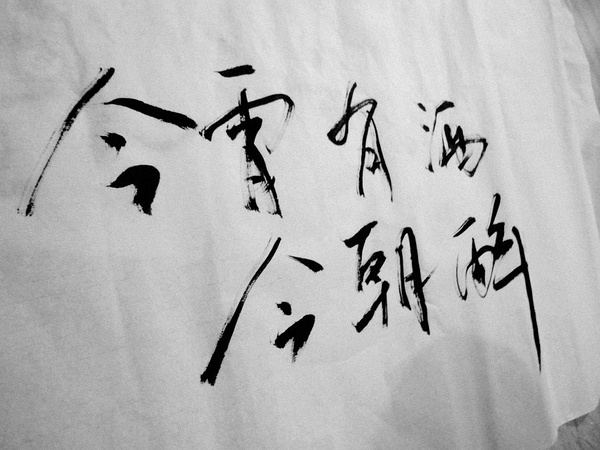 今霄有酒
今朝醉